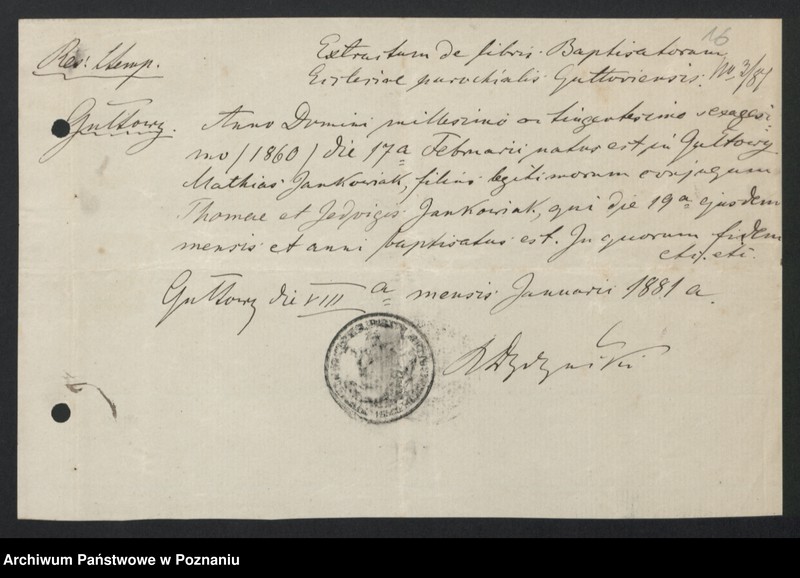 16
Extractum de libris Baptisatorum
Ecclesiae parochialis Guttoviensis. No 3/81
Res: Stemp.
Gułtowy. Anno Domini millesimo octingentesimo sexagesi-
mo (1860) die 17a Februarii natus est in Gułtowy
Mathias Jankowiak, filius legitimorum conjugum
Thomae et Jedviges Jankowiak, qui die 19a ejusdem
mensis et anni baptisatus est. In quorum fidem
etc. etc.
Gułtowy die VIII a mensis Januarii 1881 a.
Dydyński
Archiwum Państwowe w Poznaniu